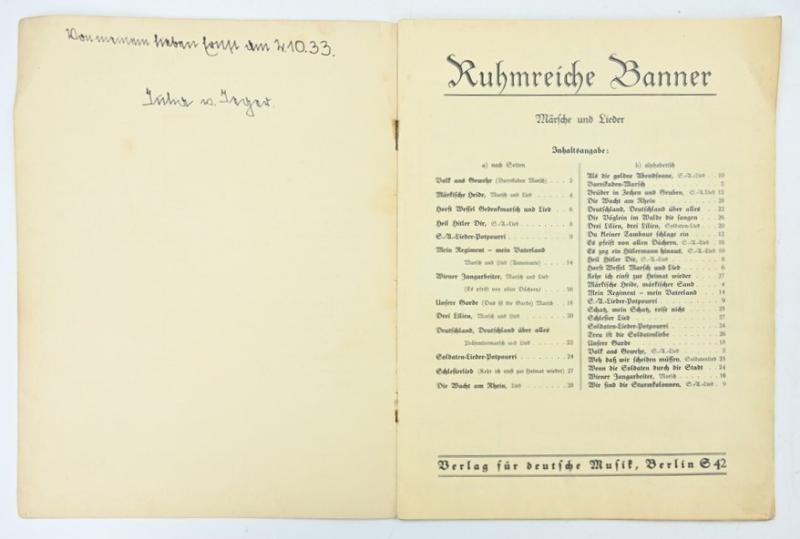 Von meinem lieben Ernst am 2.10.33.
Ruhmreiche Banner
Märsche und Lieder
Inhaltsangabe:
a) nach Seiten
Volk ans Gewehr (Barrikaden Marsch) . . . 2
Märkische Heide, Marsch und Lied . . . . 4
Horst Wessel Gedenkmarsch und Lied . . 6
Heil Hitler Dir, S.-A.-Lied . . . . . . . . 8
S.-A.-Lieder-Potpourri . . . . . . . . . . 9
Mein Regiment – mein Vaterland
Marsch und Lied (Annemarie) . . . . . 14
Wiener Jungarbeiter, Marsch und Lied
(Es pfeift von allen Dächern) . . . . . 16
Unsere Garde (Das ist die Garde) Marsch . 18
Drei Lilien, Marsch und Lied . . . . . . . 20
Deutschland, Deutschland über alles
Präsentiermarsch und Lied . . . . . . 22
Soldaten-Lieder-Potpourri . . . . . . . . 24
Schlesierlied (Kehr ich einst zur Heimat wieder) 27
Die Wacht am Rhein, Lied . . . . . . . . 28
b) alphabetisch
Als die goldne Abendsonne, S.-A.-Lied . . 10
Barrikaden-Marsch . . . . . . . . . . . 2
Brüder in Zechen und Gruben, S.-A.-Lied 12
Die Wacht am Rhein . . . . . . . . . . 28
Deutschland, Deutschland über alles . . 22
Die Vöglein im Walde die sangen . . . 26
Drei Lilien, drei Lilien, Soldaten-Lied . . 20
Du kleiner Tambour schlage ein . . . . 12
Es pfeift von allen Dächern, S.-A.-Lied . 16
Es zog ein Hitlermann hinaus, S.-A.-Lied 10
Heil Hitler Dir, S.-A.-Lied . . . . . . . 8
Horst Wessel Marsch und Lied . . . . . 6
Kehr ich einst zur Heimat wieder . . . . 27
Märkische Heide, märkischer Sand . . . 4
Mein Regiment – mein Vaterland . . . . 14
S.-A.-Lieder-Potpourri . . . . . . . . . 9
Schatz, mein Schatz, reise nicht . . . . 25
Schlesier Lied . . . . . . . . . . . . . 27
Soldaten-Lieder-Potpourri . . . . . . . 24
Treu ist die Soldatenliebe . . . . . . . 26
Unsere Garde . . . . . . . . . . . . . 18
Volk ans Gewehr, S.-A.-Lied . . . . . . 2
Weh daß wir scheiden müssen, Soldatenlied 25
Wenn die Soldaten durch die Stadt . . . 24
Wiener Jungarbeiter, Marsch . . . . . . 16
Wir sind die Sturmkolonnen, S.-A.-Lied . 9
Verlag für deutsche Musik, Berlin S 42